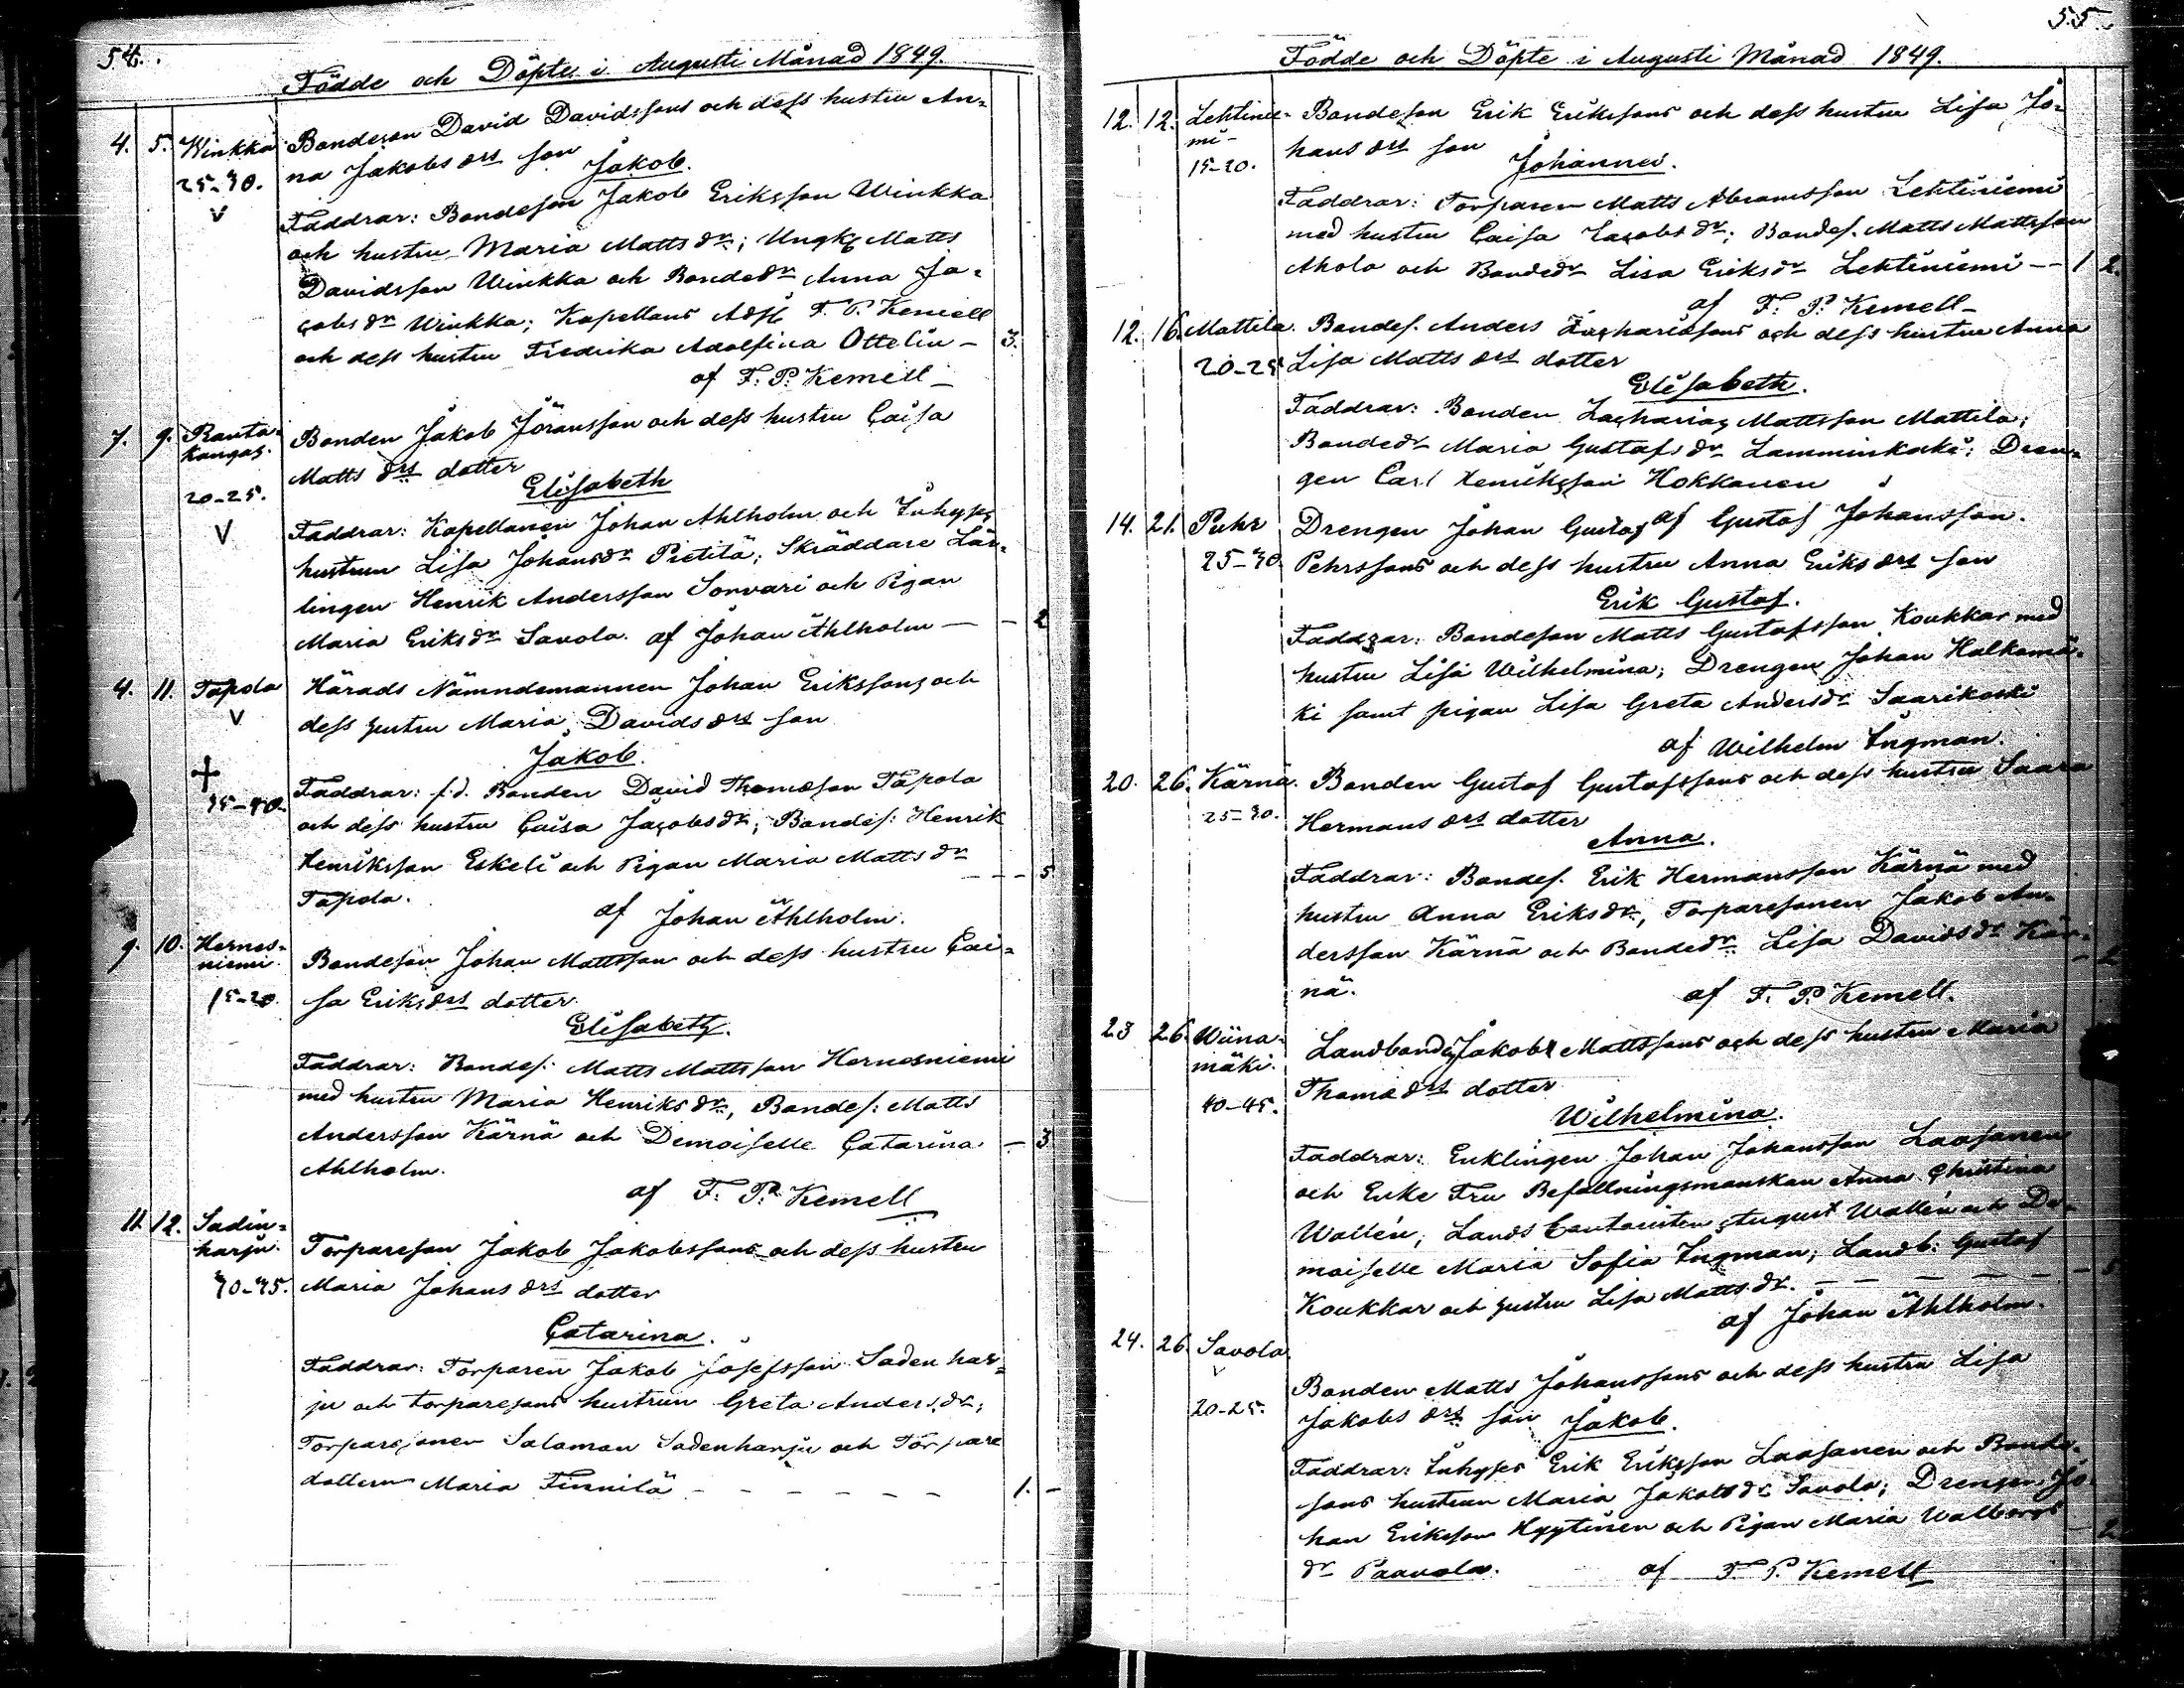 54.
Födde och Döpte i Augusti Månad 1849.
4. 5. Winkka Bondeson David Davidssons och dess hustru An-
25-30. na Jakobs drs son
Jakob.
Faddrar: Bondeson Jakob Eriksson Winkka
och hustru Maria Matts dr; Ungk Matts
Davidsson Winkka och Bondedr Anna Ja-
cobs dr Winkka; Kapellans Adj F. P. Kemell
och dess hustru Fredrika Adolfina Ottelin - 3.
af F. P. Kemell
7. 9. Ranta- Bonden Jakob Jöransson och dess hustru Caisa
kangas. Matts drs dotter
20-25. Elisabeth
Faddrar: Kapellanen Johan Ahlholm och Inhyses
hustrun Lisa Johansdr Pietilä; Skräddare Lär-
lingen Henrik Andersson Sorvari och Pigan
Maria Eriks dr Savola. af Johan Ahlholm - - 2
4. 11. Tapola Härads Nämndemannen Johan Erikssons och
V dess hustru Maria Davids drs son
Jakob.
35-40. Faddrar: f.d. Bonden David Thomasson Tapola
och dess hustru Caisa Jacobsdr; Bondes: Henrik
Henriksson Eskeli och Pigan Maria Matts dr
Tapola. - - - 5
af Johan Ahlholm.
9. 10. Hernes- Bondeson Johan Mattsson och dess hustru Cai-
niemi
15-20. sa Eriks drs dotter
Elisabeth.
Faddrar: Bondes. Matts Mattsson Hernesniemi
med hustru Maria Henriks dr, Bondes: Matts
Andersson Kärnä och Demoiselle Catarina - 3
Ahlholm.
af F. P. Kemell
11. 12. Sadin-
harju. Torpareson Jakob Jakobssons och dess hustru
40-45. Maria Johans drs dotter
Catarina.
Faddrar: Torparen Jakob Josefsson Sadenhar-
ju och torparesons hustrun Greta Anders dr;
Torparesonen Salomon Sadenharju och Torpare
dottern Maria Finnilä - - - - - - 1. -
55.
Födde och Döpte i Augusti Månad 1849.
12. 12. Lehtinie- Bondeson Erik Erikssons och dess hustru Lisa Jo-
mi-
15-20. hans drs son
Johannes.
Faddrar: Torparen Matts Abramsson Lehtiniemi
med hustru Caisa Jacobs dr; Bondes. Matts Mattsson
Ahola och Bondedr Lisa Eriks dr Lehtiniemi -- 1 2.
af F. P. Kemell-
12. 16. Mattila. Bondes. Anders Zachariassons och dess hustru Anna
20-25 Lisa Matts drs dotter
Elisabeth.
Faddrar: Bonden Zacharias Mattsson Mattila;
Bondedr Maria Gustafs dr Lamminkoski; Dren-
gen Carl Henriksson Hokkanen
af Gustaf Johansson.
14. 21. Puhr Drengen Johan Gustaf
25-30. Pehrssons och dess hustru Anna Eriks drs son
Erik Gustaf.
Faddrar: Bondeson Matts Gustafsson Koukkar med
hustru Lisa Wilhelmina; Drengen Johan Halkomä-
ki samt pigan Lisa Greta Andersdr Saarikoski
af Wilhelm Ingman.
20. 26. Kärnä. Bonden Gustaf Gustafssons och dess hustru Saara
25-30. Hermans drs dotter
Anna.
Faddrar: Bondes. Erik Hermansson Kärnä med
hustru Anna Eriks dr, Torparesonen Jakob An-
dersson Kärnä och Bondedr Lisa Davidsdr Kär-
nä.
af F. P. Kemell.
23 26. Wiina- Landbonde Jakob Mattssons och dess hustru Maria
mäki.
40-45. Thoma drs dotter
Wilhelmina.
Faddrar: Enklingen Johan Johansson Laasanen
och Enke Fru Befallningsmanskan Anna Christina
Wallén, Lands Cantoristen August Wallén och De-
moiselle Maria Sofia Ingman; Landb: Gustaf
Koukkar och hustru Lisa Matts dr. - - - - - - 5
af Johan Ahlholm.
24. 26. Savola.
Bonden Matts Johanssons och dess hustru Lisa
20-25. Jakobs drs son Jakob.
Faddrar: Inhyses Erik Eriksson Laasanen och Bonde-
sons hustrun Maria Jakobs dr Savola; Drengen Jo-
han Eriksson Hyytinen och Pigan Maria Walborgs - 2
dr Paavola. af F. P. Kemell